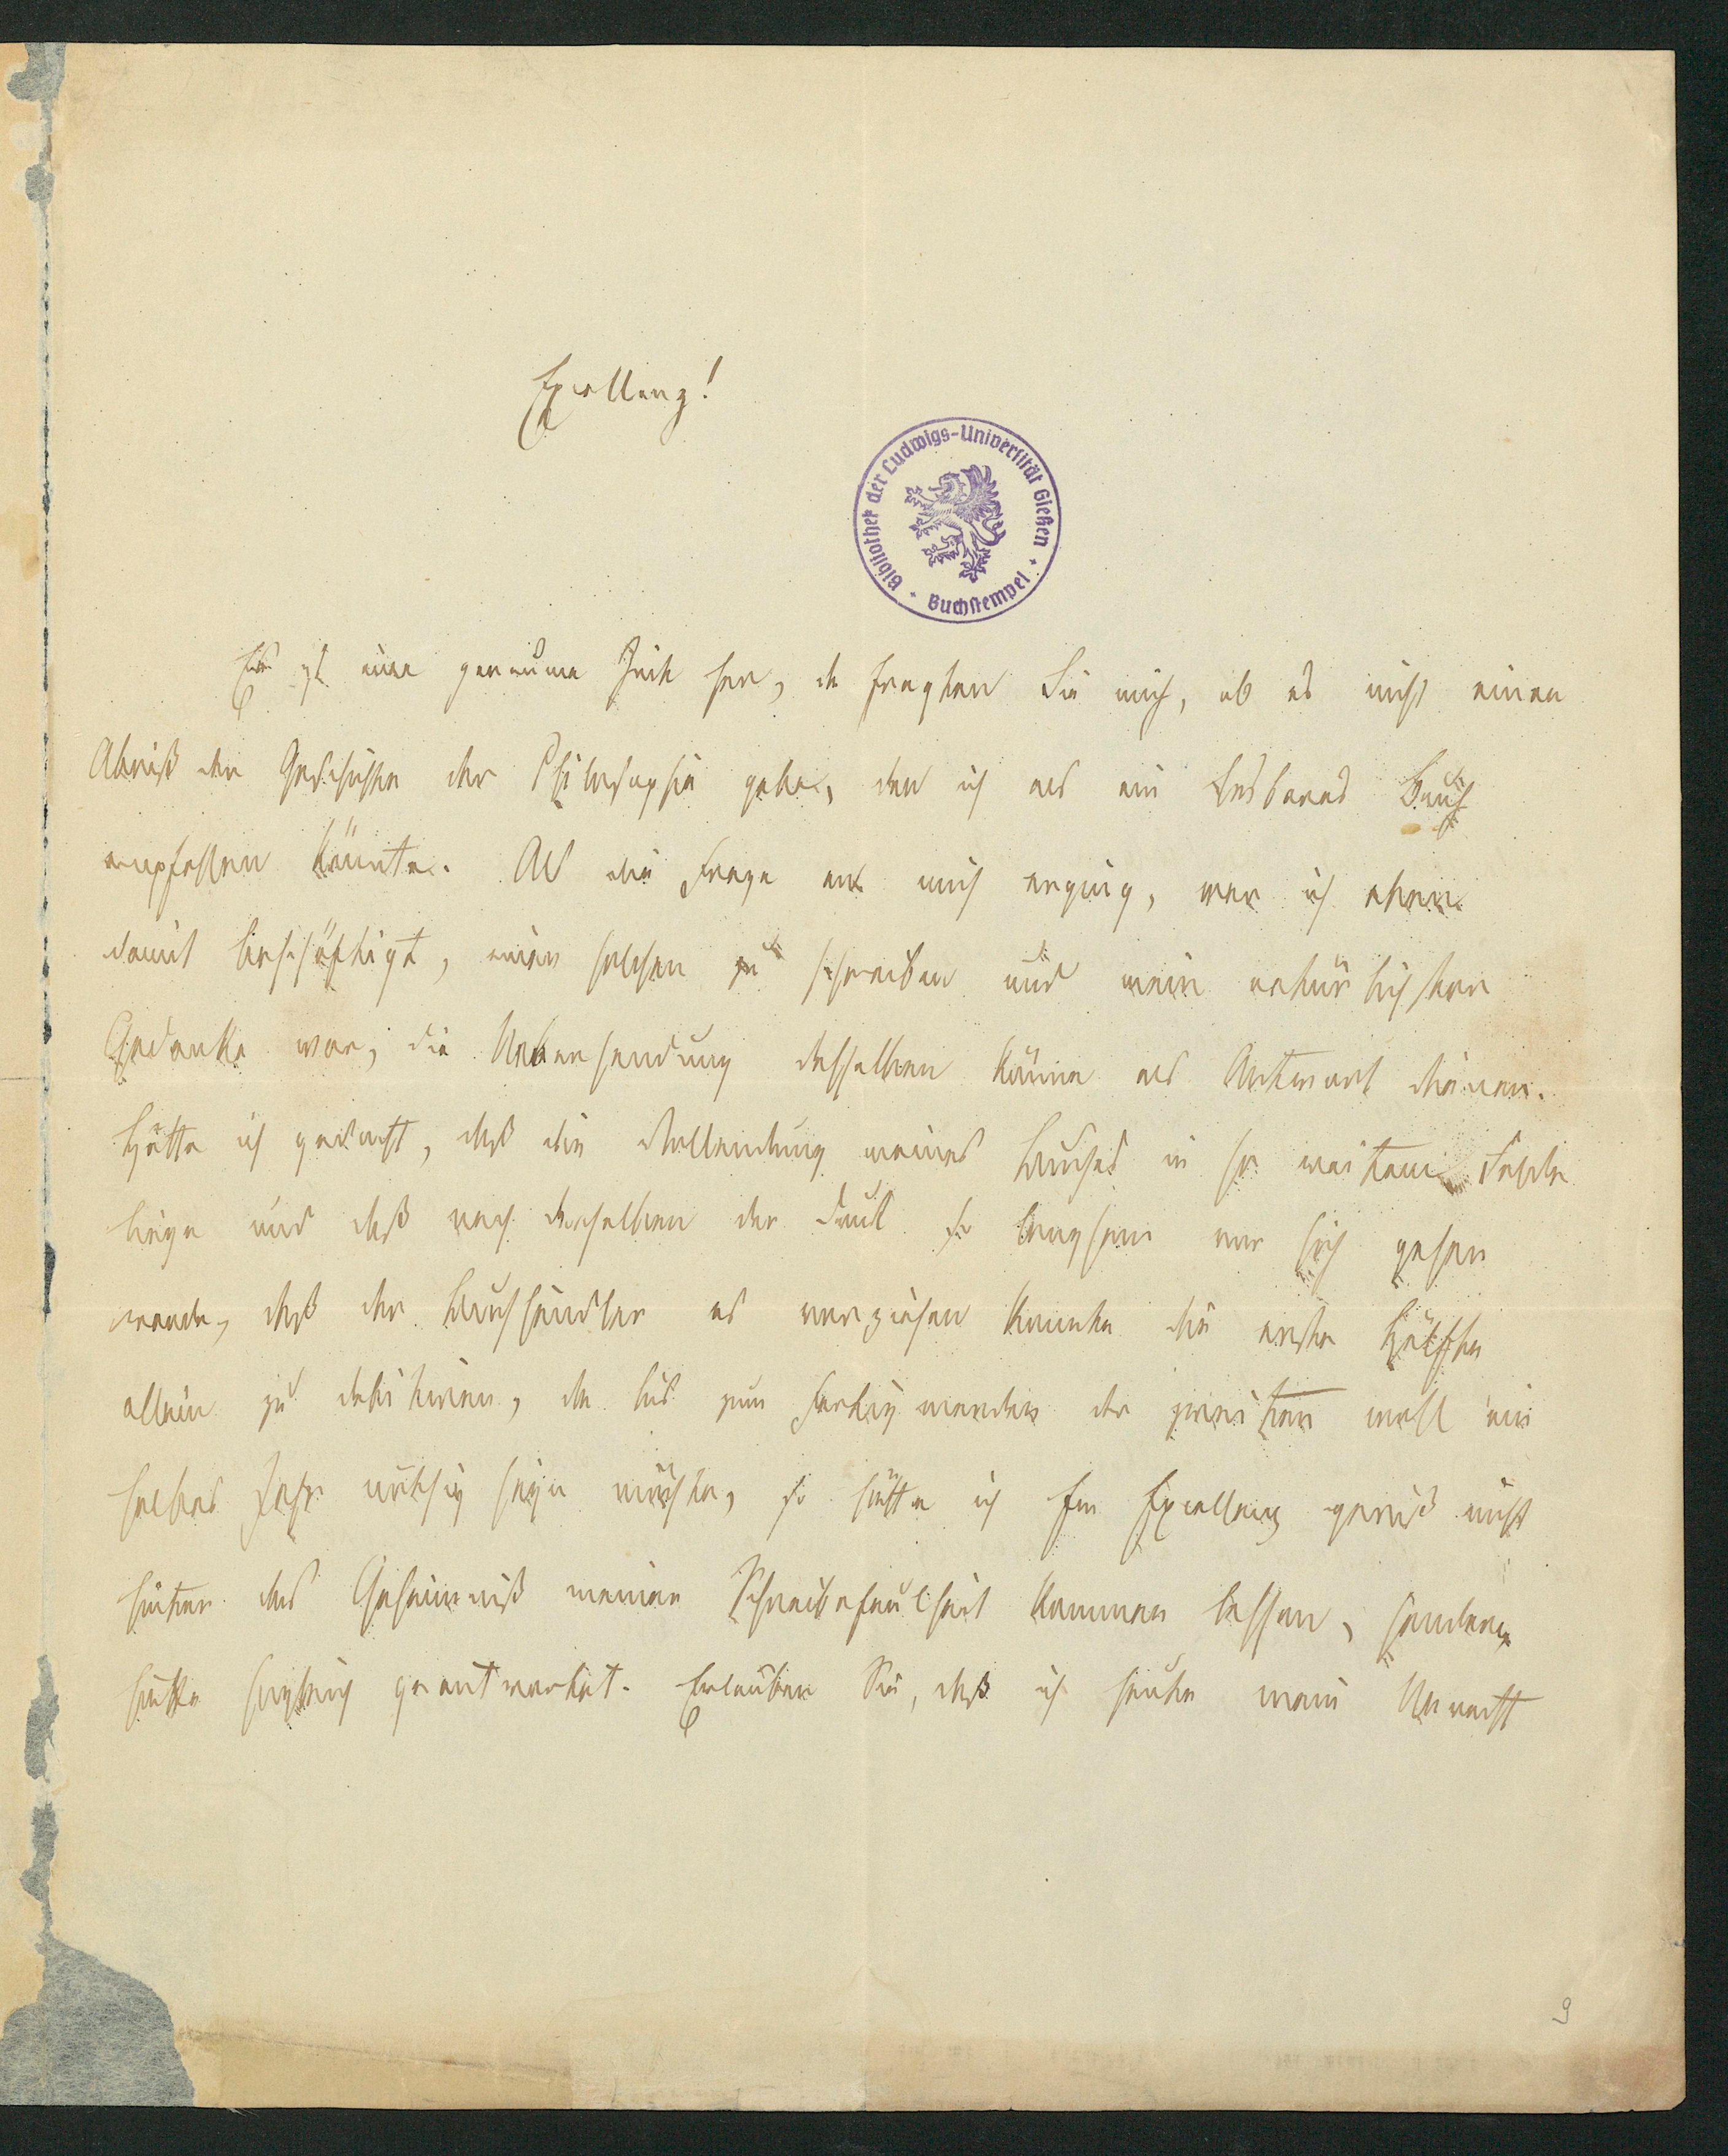 Excellenz!
Bibliothek der Ludwigs-Universität Gießen
Buchstempel
Es ist eine geraume Zeit her, da fragten Sie mich, ob es nicht einen
Abriß der Geschichte der Philosophie gebe, den ich als ein lesbares Buch
empfehlen könnte. Als die Frage an mich erging, war ich eben
damit beschäftigt, einen solchen zu schreiben und mein natürlichster
Gedanke war, die Uebersendung desselben könne als Antwort dienen.
Hätte ich gedacht, daß die Vollendung meines Buches in so weitem Felde
liege und daß nach derselben der Druck so langsam vor sich gehen
werde, daß der Buchhändler es vorziehen konnte die erste Hälfte
allein zu debitiren, da bis zum Fertigwerden der zweiten wohl ein
halbes Jahr nöthig seyn möchte, so hätte ich Ew Excellenz gewiß nicht
hinter das Geheimniß meiner Schreibefaulheit kommen lassen, sondern
hätte sogleich geantwortet. Erlauben Sie, daß ich heute mein Unrecht
9